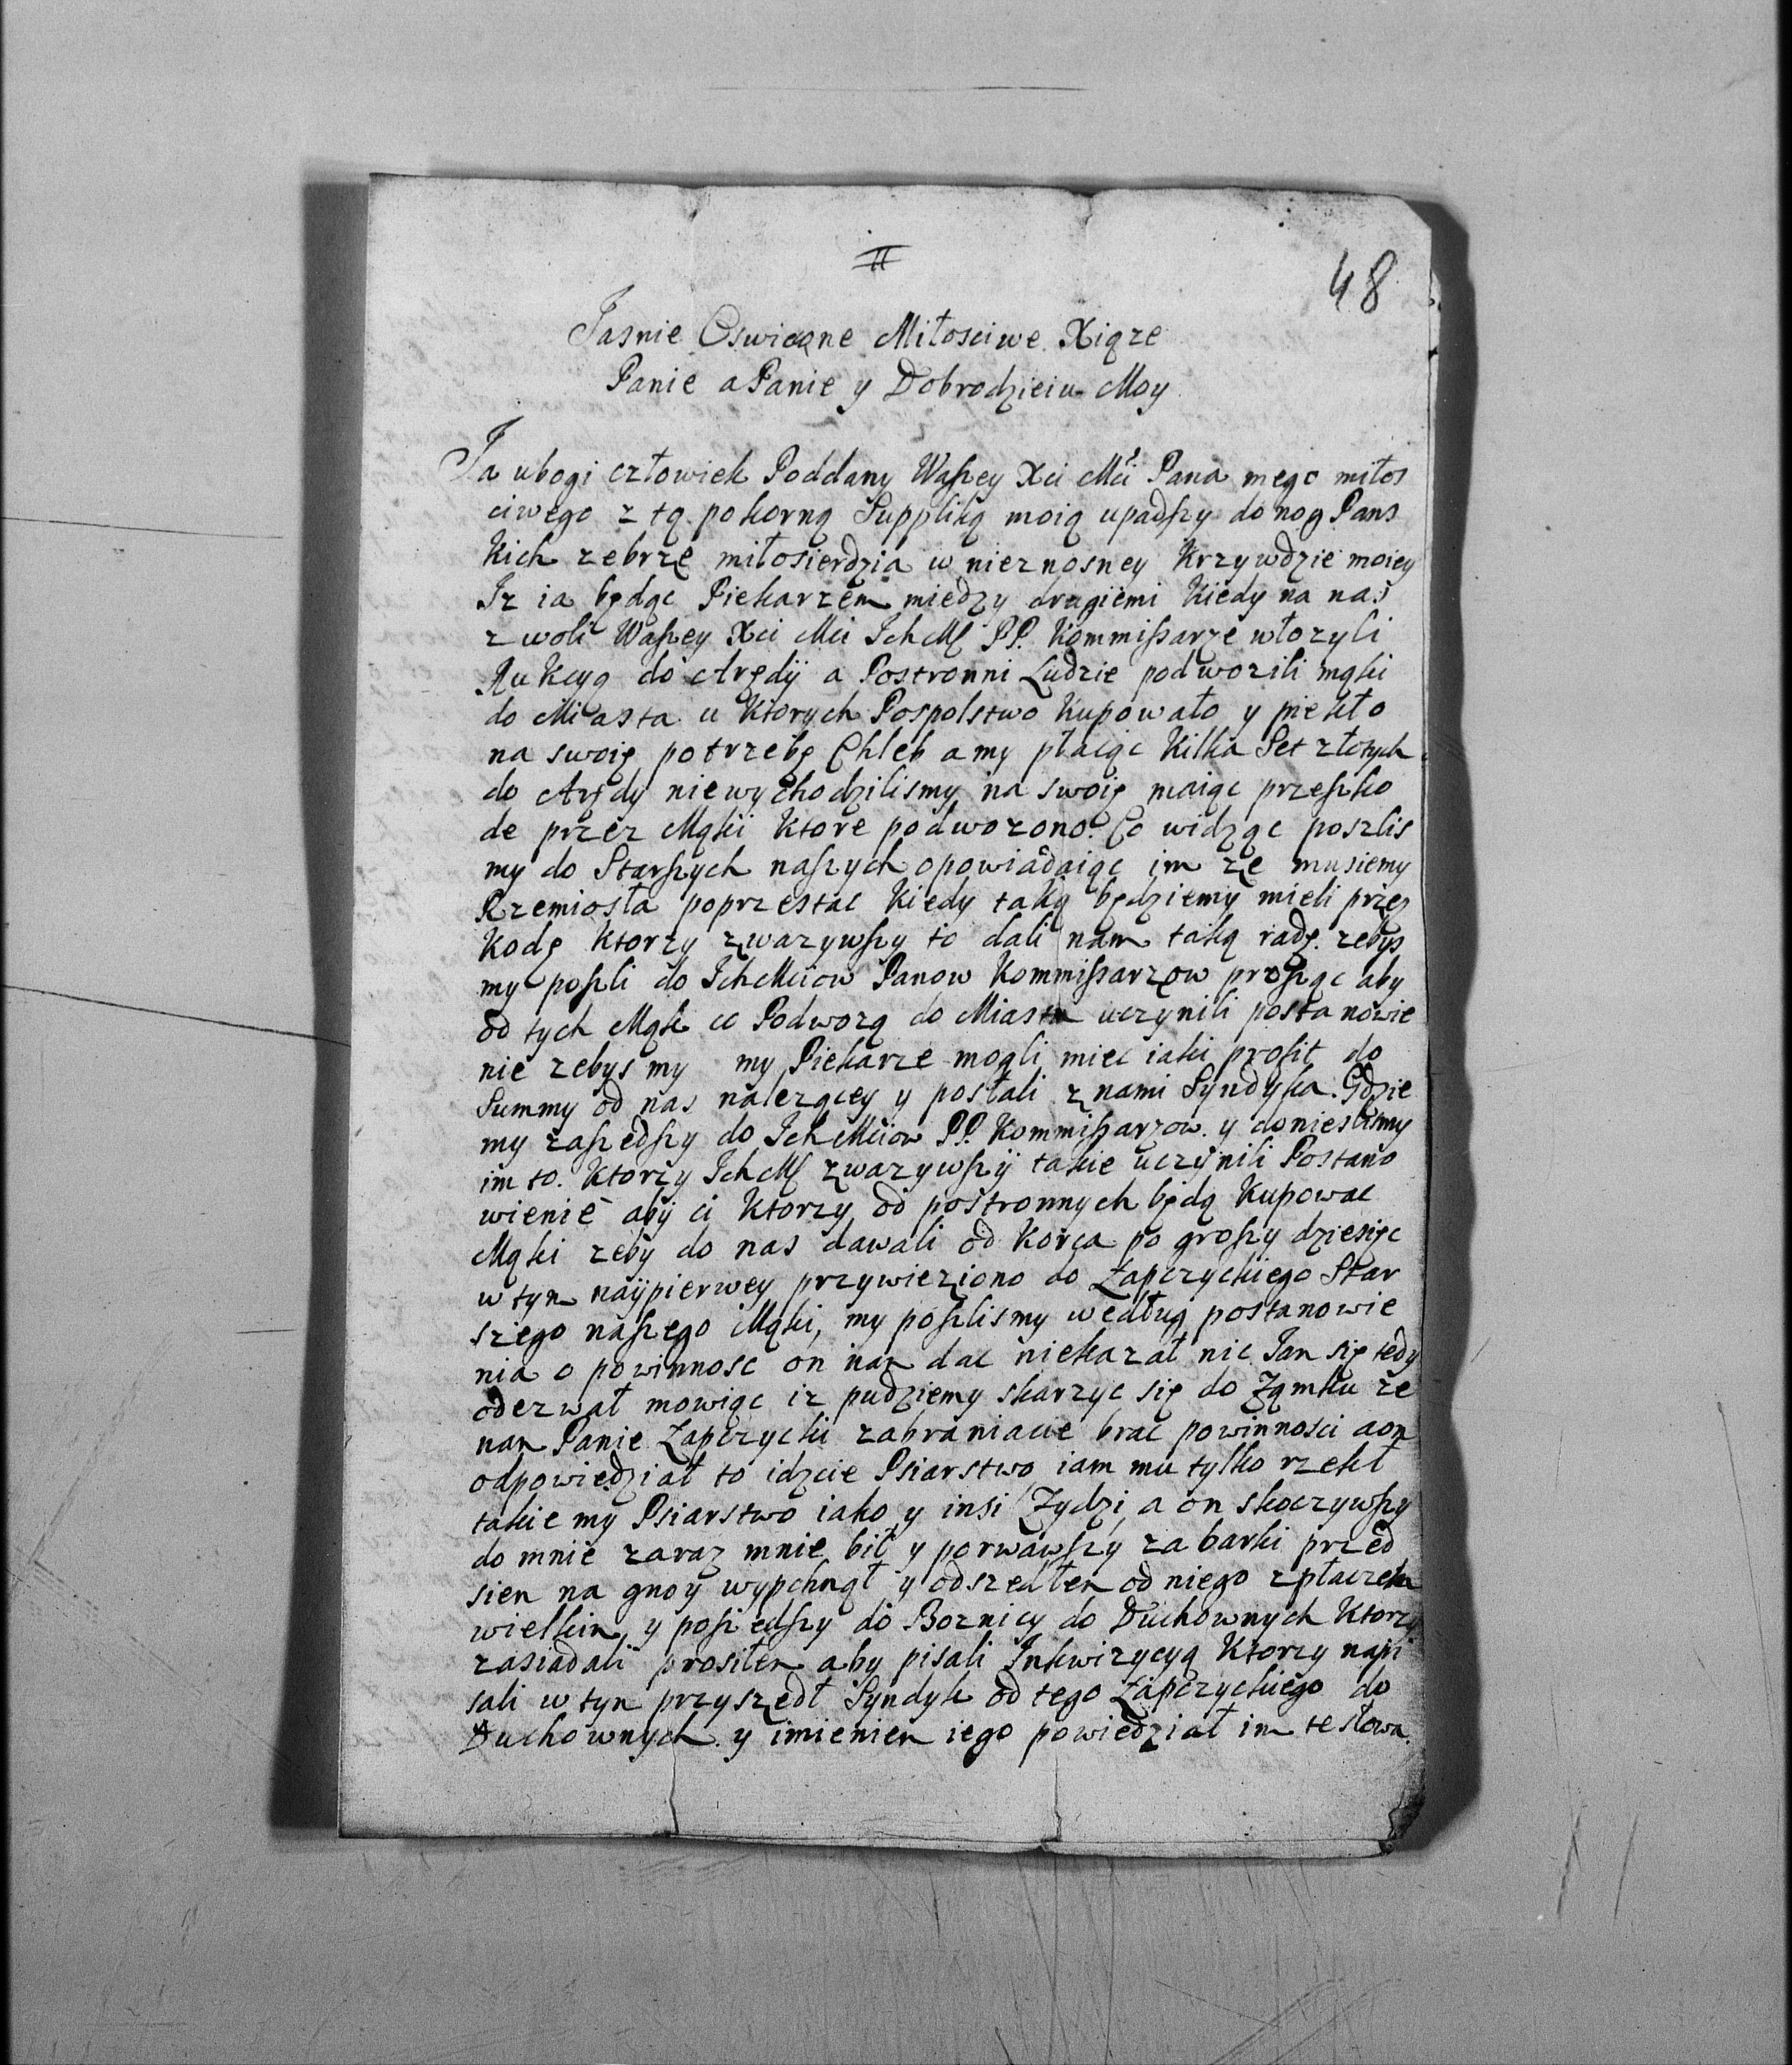 II
48
Jasnie Oswiecone Miłosciwe Xiąze
Panie a Panie y Dobrodzieiu Moy
Ja ubogi człowiek Poddany Waszey Xci Mći Pana mego miłos
ciwego z tą pokorną Suppliką moią upadszy do nog Pans
kich zebrzę miłosierdzia w nieznosney Krzywdzie moiey
Iz ia będąc Piekarzem miedzy drugiemi Kiedy na nas
z woli Waszey Xci Mci Ich M PP. Kommissarze włozyli
Aukcyą do Arędy a Postronni Ludzie podwozili mąki
do Miasta u Ktorych Pospolstwo Kupowało y piekło
na swoię potrzebę Chleb a my płacąc Kilka Set złotych
do Arędy niewychodzilismy na swoię maiąc przeszko
de przez Mąki Ktore podwozono. Co widząc poszlis
my do Starszych naszych opowiadaiąc im ze musiemy
Rzemiosła poprzestac Kiedy taką będziemy mieli przes
kodę Ktorzy zwazywszy to dali nam taką radę. zebys
my poszli do Ich Mciow Panow Kommissarzow prosząc aby
od tych Mąk co Podwozą do Miasta uczynili postanowie
nie zebysmy my Piekarze mogli miec iaki profit do
Summy od nas nalezącey y posłali z nami Syndyka. Gdzie
my zaszedszy do Ich Mciow PP. Kommissarzow. y donieslismy
im to. Ktorzy Ich M zwazywszy takie uczynili Postano
wienie aby ci Ktorzy od postronnych będą Kupowac
Mąki zeby do nas dawali od Korca po groszy dziesięc
w tym naypierwey przywieziono do Łapczyckiego Star
szego naszego Mąki, my poszlismy według postanowie
nia o powinnosc on nam dac niekazał nic Jam się tedy
odezwał mowiąc iz pudziemy skarzyc się do Ządmku ze
nam Panie Łapczycki zabraniacie brac powinnosci a on
odpowiedział to idzcie Psiarstwo iam mu tylko rzekł
takie my Psiarstwo iako y insi Zydzi, a on skoczywszy
do mnie zaraz mnie bił y porwawszy za barki przed
sien na gnoy wypchnął y odszedłem od niego z płaczem
wielkim, y poszedszy do Boznicy do Duchownych Ktorzy
zasiadali prosiłem aby pisali Inkwizycyą Ktorzy napi
sali w tym przyszedł Syndyk od tego Łapczyckiego do
Duchownych y imieniem iego powiedział im te słowa.